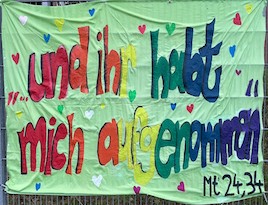 „...und ihr habt
mich aufgenommen“
Mt 24,34